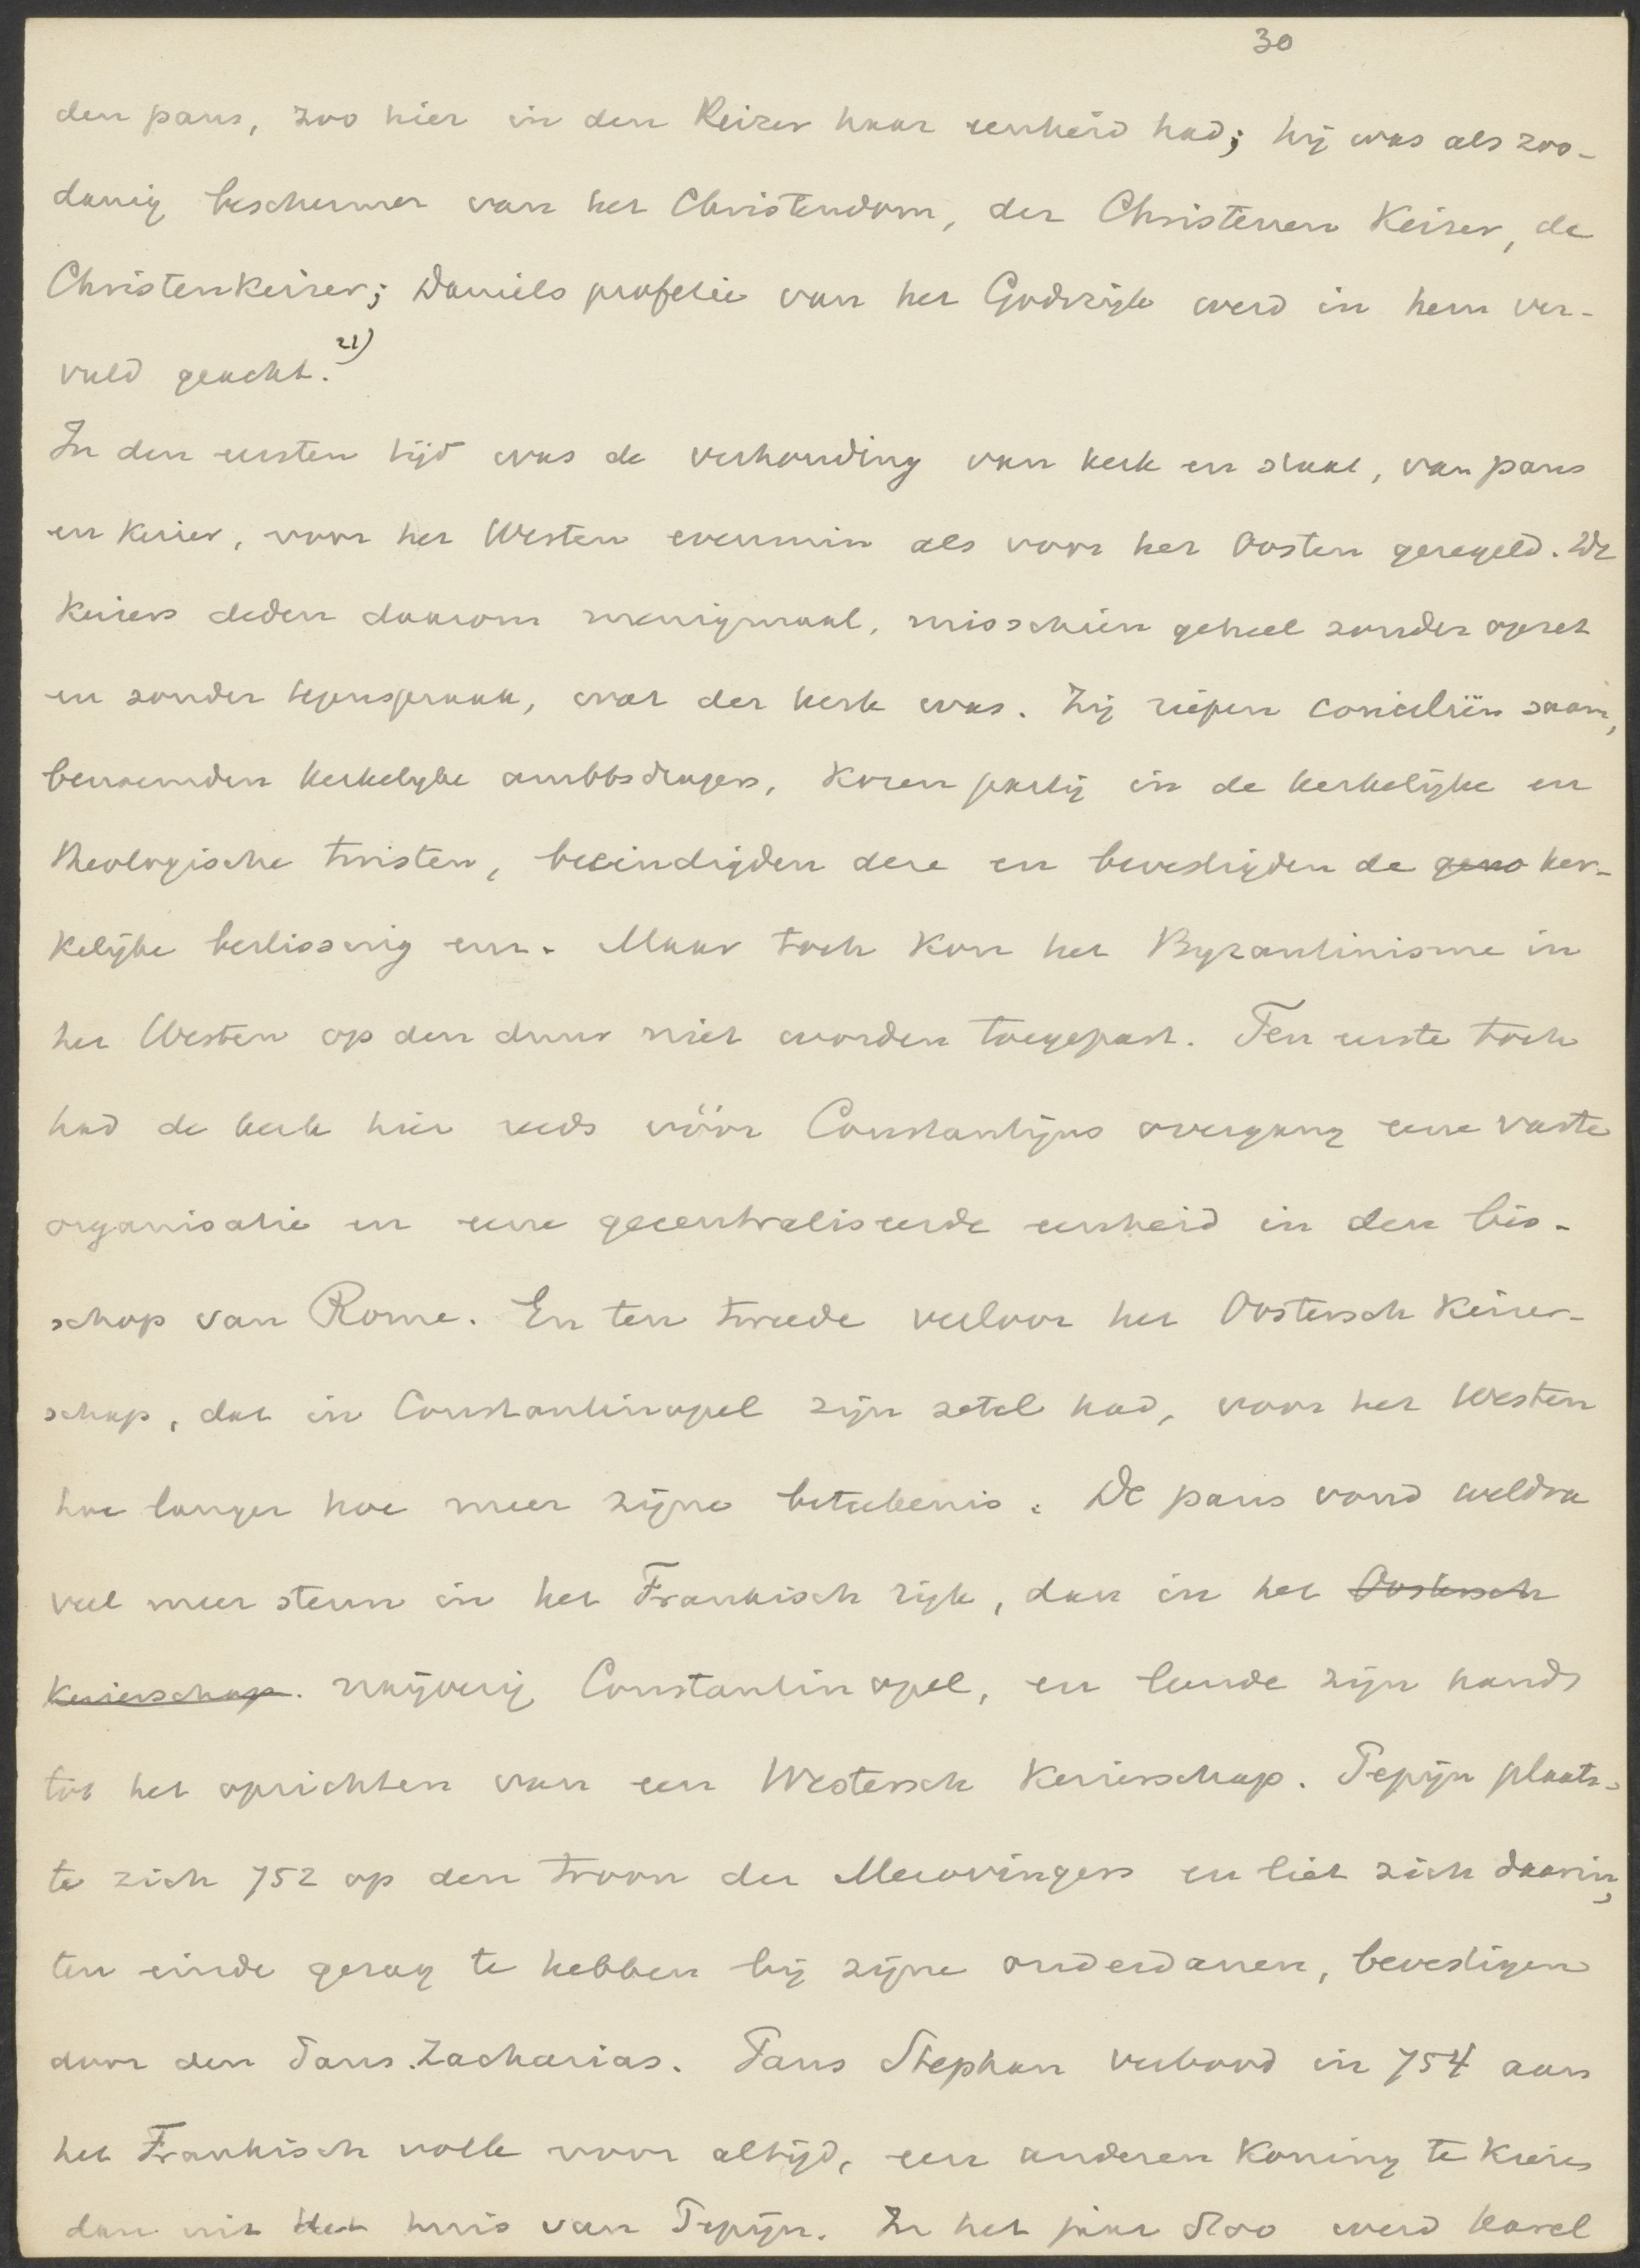 30
den paus, zoo hier in den Keizer haar eenheid had; hij was als zoo-
danig beschermer van het Christendom, der Christenen Keizer, de
Christenkeizer; Daniels profetie van het Godsrijk werd in hem ver-
vuld geacht. 21)
In den eersten tijd was de verhouding van kerk en staat, van paus
en Keizer, voor het Westen evenmin als voor het Oosten geregeld. De
Keizers deden daarom menigmaal, misschien geheel zonder opzet
en zonder tegenspraak, wat der kerk was. Zij riepen conciliën saam,
benoemden kerkelijke ambtsdragers, kozen partij in de kerkelijke en
theologische twisten, beeindigden deze en bevestigden de geno ker-
kelijke beslissing en. Maar toch kon het Byzantinisme in
het Westen op den duur niet worden toegepast. Ten eerste toch
had de kerk hier reeds vóór Constantijns overgang eene vaste
organisatie en eene gecentraliseerde eenheid in den bis-
schop van Rome. En ten tweede verloor het Oostersch Keizer-
schap, dat in Constantinopel zijn zetel had, voor het Westen
hoe langer hoe meer zijne beteekenis. De paus vond weldra
veel meer steun in het Frankisch rijk, dan in het Oostersch
Keizerschap. naijverig Constantinopel, en leende zijn hand
tot het oprichten van een Westersch Keizerschap. Pepijn plaats-
te zich 752 op den troon der Merovingers en liet zich daarin,
ten einde gezag te hebben bij zijne onderdanen, bevestigen
door den Paus Zacharias. Paus Stephan verbood in 754 aan
het Frankisch volk voor altijd, een anderen Koning te kiezen
dan uit het huis van Pepijn. In het jaar 800 werd Karel